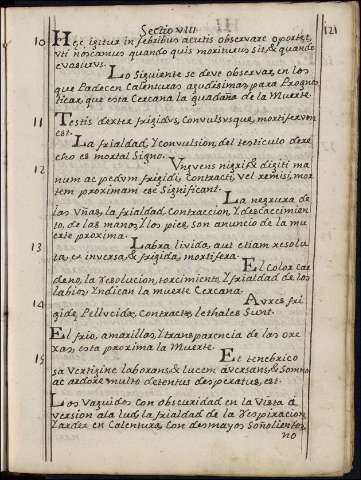 Sectio VIII
121
10 Hęc igitur in febribus acutis observare oportet,
vti noscamus quando quis moriturus sit, & quande
evasurus.
Lo Siguiente se deve observar, en los
que Padecen Calenturas agudissimas, para Prognos-
ticar, que esta Cercana la guadaña de la Muerte.
11 Testis dexter frigidus, convulsusque, mortiferum
est.
La frialdad, Y convulsion, del testiculo dere
cho es mortal Signo.
12 Vngues nigri, & digiti ma
num ac pedum frigidi, contracti, vel remisi, mor
tem proximam esse Significant.
La negrura de
las Vñas, la frialdad, Contraccion, Y descaecimien
to, de las manos, Y los pies, son anuncio de la mu
erte proxima.
13 Labra livida, aut etiam resolu
ta, et inversa, & frigida, mortifera.
El Color Car
deno, la resolucion, torcimiento, Y frialdad de los
labios, Yndican la muerte Cercana.
14 Avres fri
gidę, Pellucidę, Contractę, lethales Sunt.
El frio, amarillas, Y transparencia de las ore
xas, esta proxima la Muerte.
15 Et tenebrico
sa vertigine laborans, & lucem aversans, & Somno
ac ardore multo detentus desperatus, est.
Los Vaguidos con obscuridad en la Vista a
version a la lud, la frialdad de la respiracion,
Y arder en Calentura, Con desmayos Soñolientos,
no